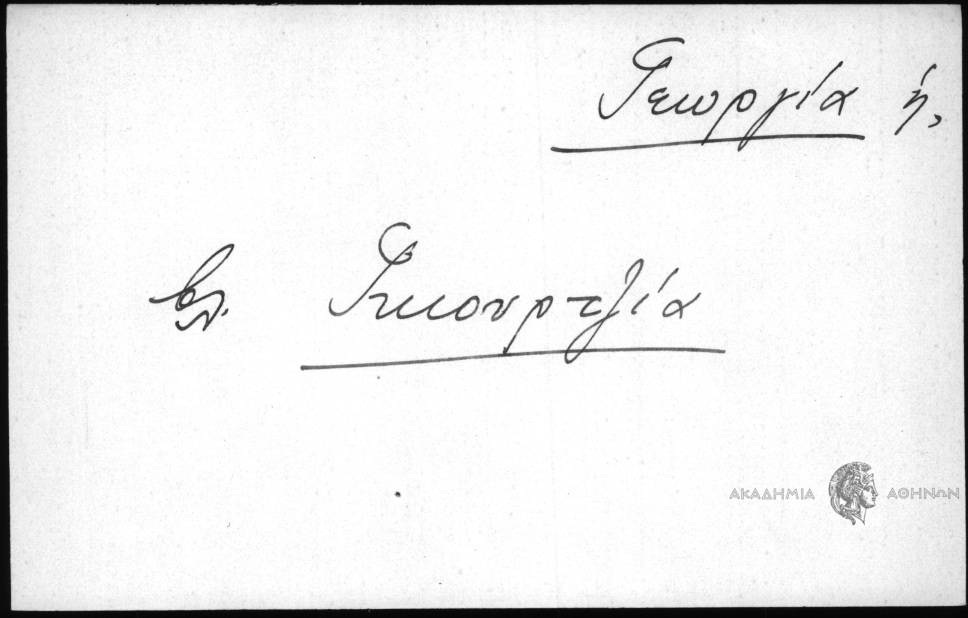 Γεωργία ἡ,
βλ. Γκιουρτζία
ΑΚΑΔΗΜΙΑ ΑΘΗΝΩΝ